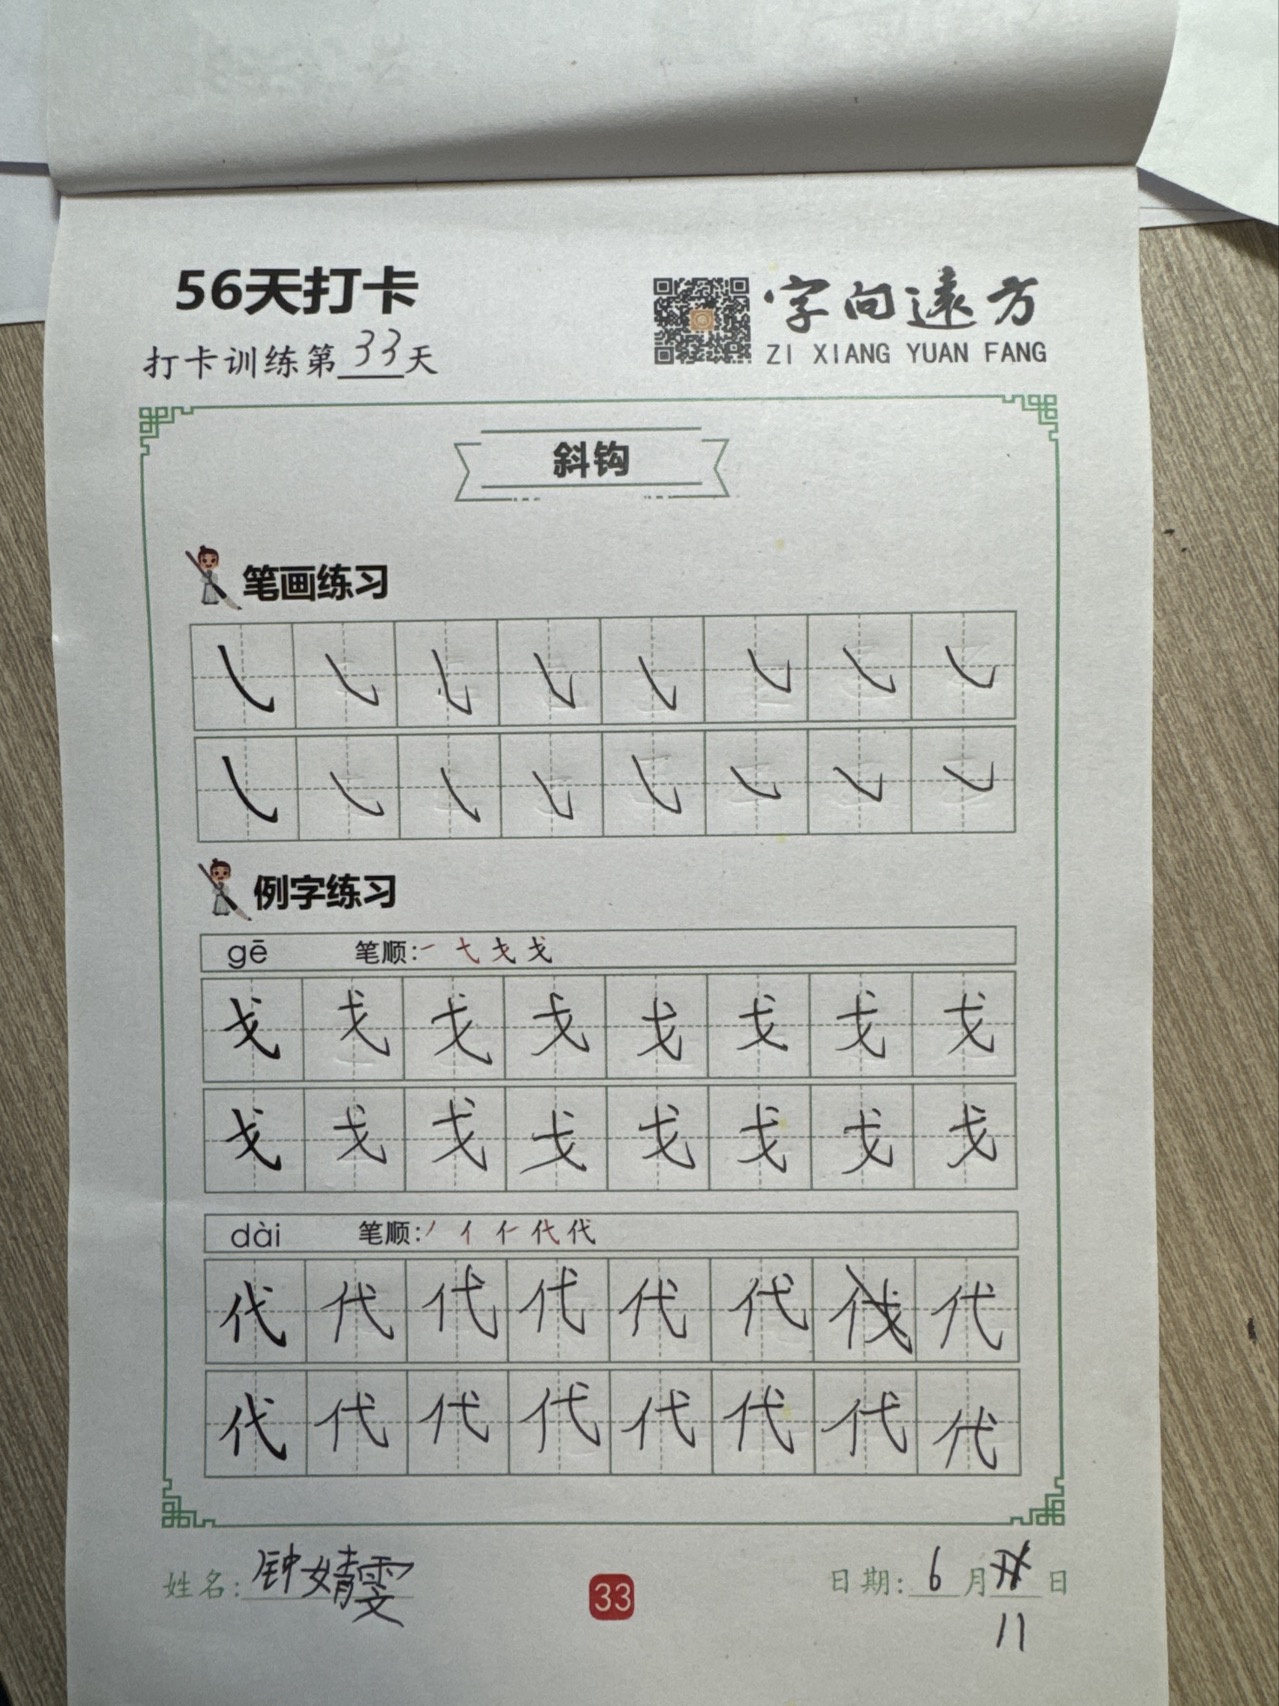 56天打卡
字向遠方
ZI XIANG YUAN FANG
打卡训练第33天
斜钩
笔画练习
例字练习
gē 笔顺:
戈 戈 戈 戈 戈 戈 戈 戈
戈 戈 戈 戈 戈 戈 戈 戈
dài 笔顺:
代 代 代 代 代 代 代
代 代 代 代 代 代 代 代
姓名:钟婧雯
33
日期:6月 日
11